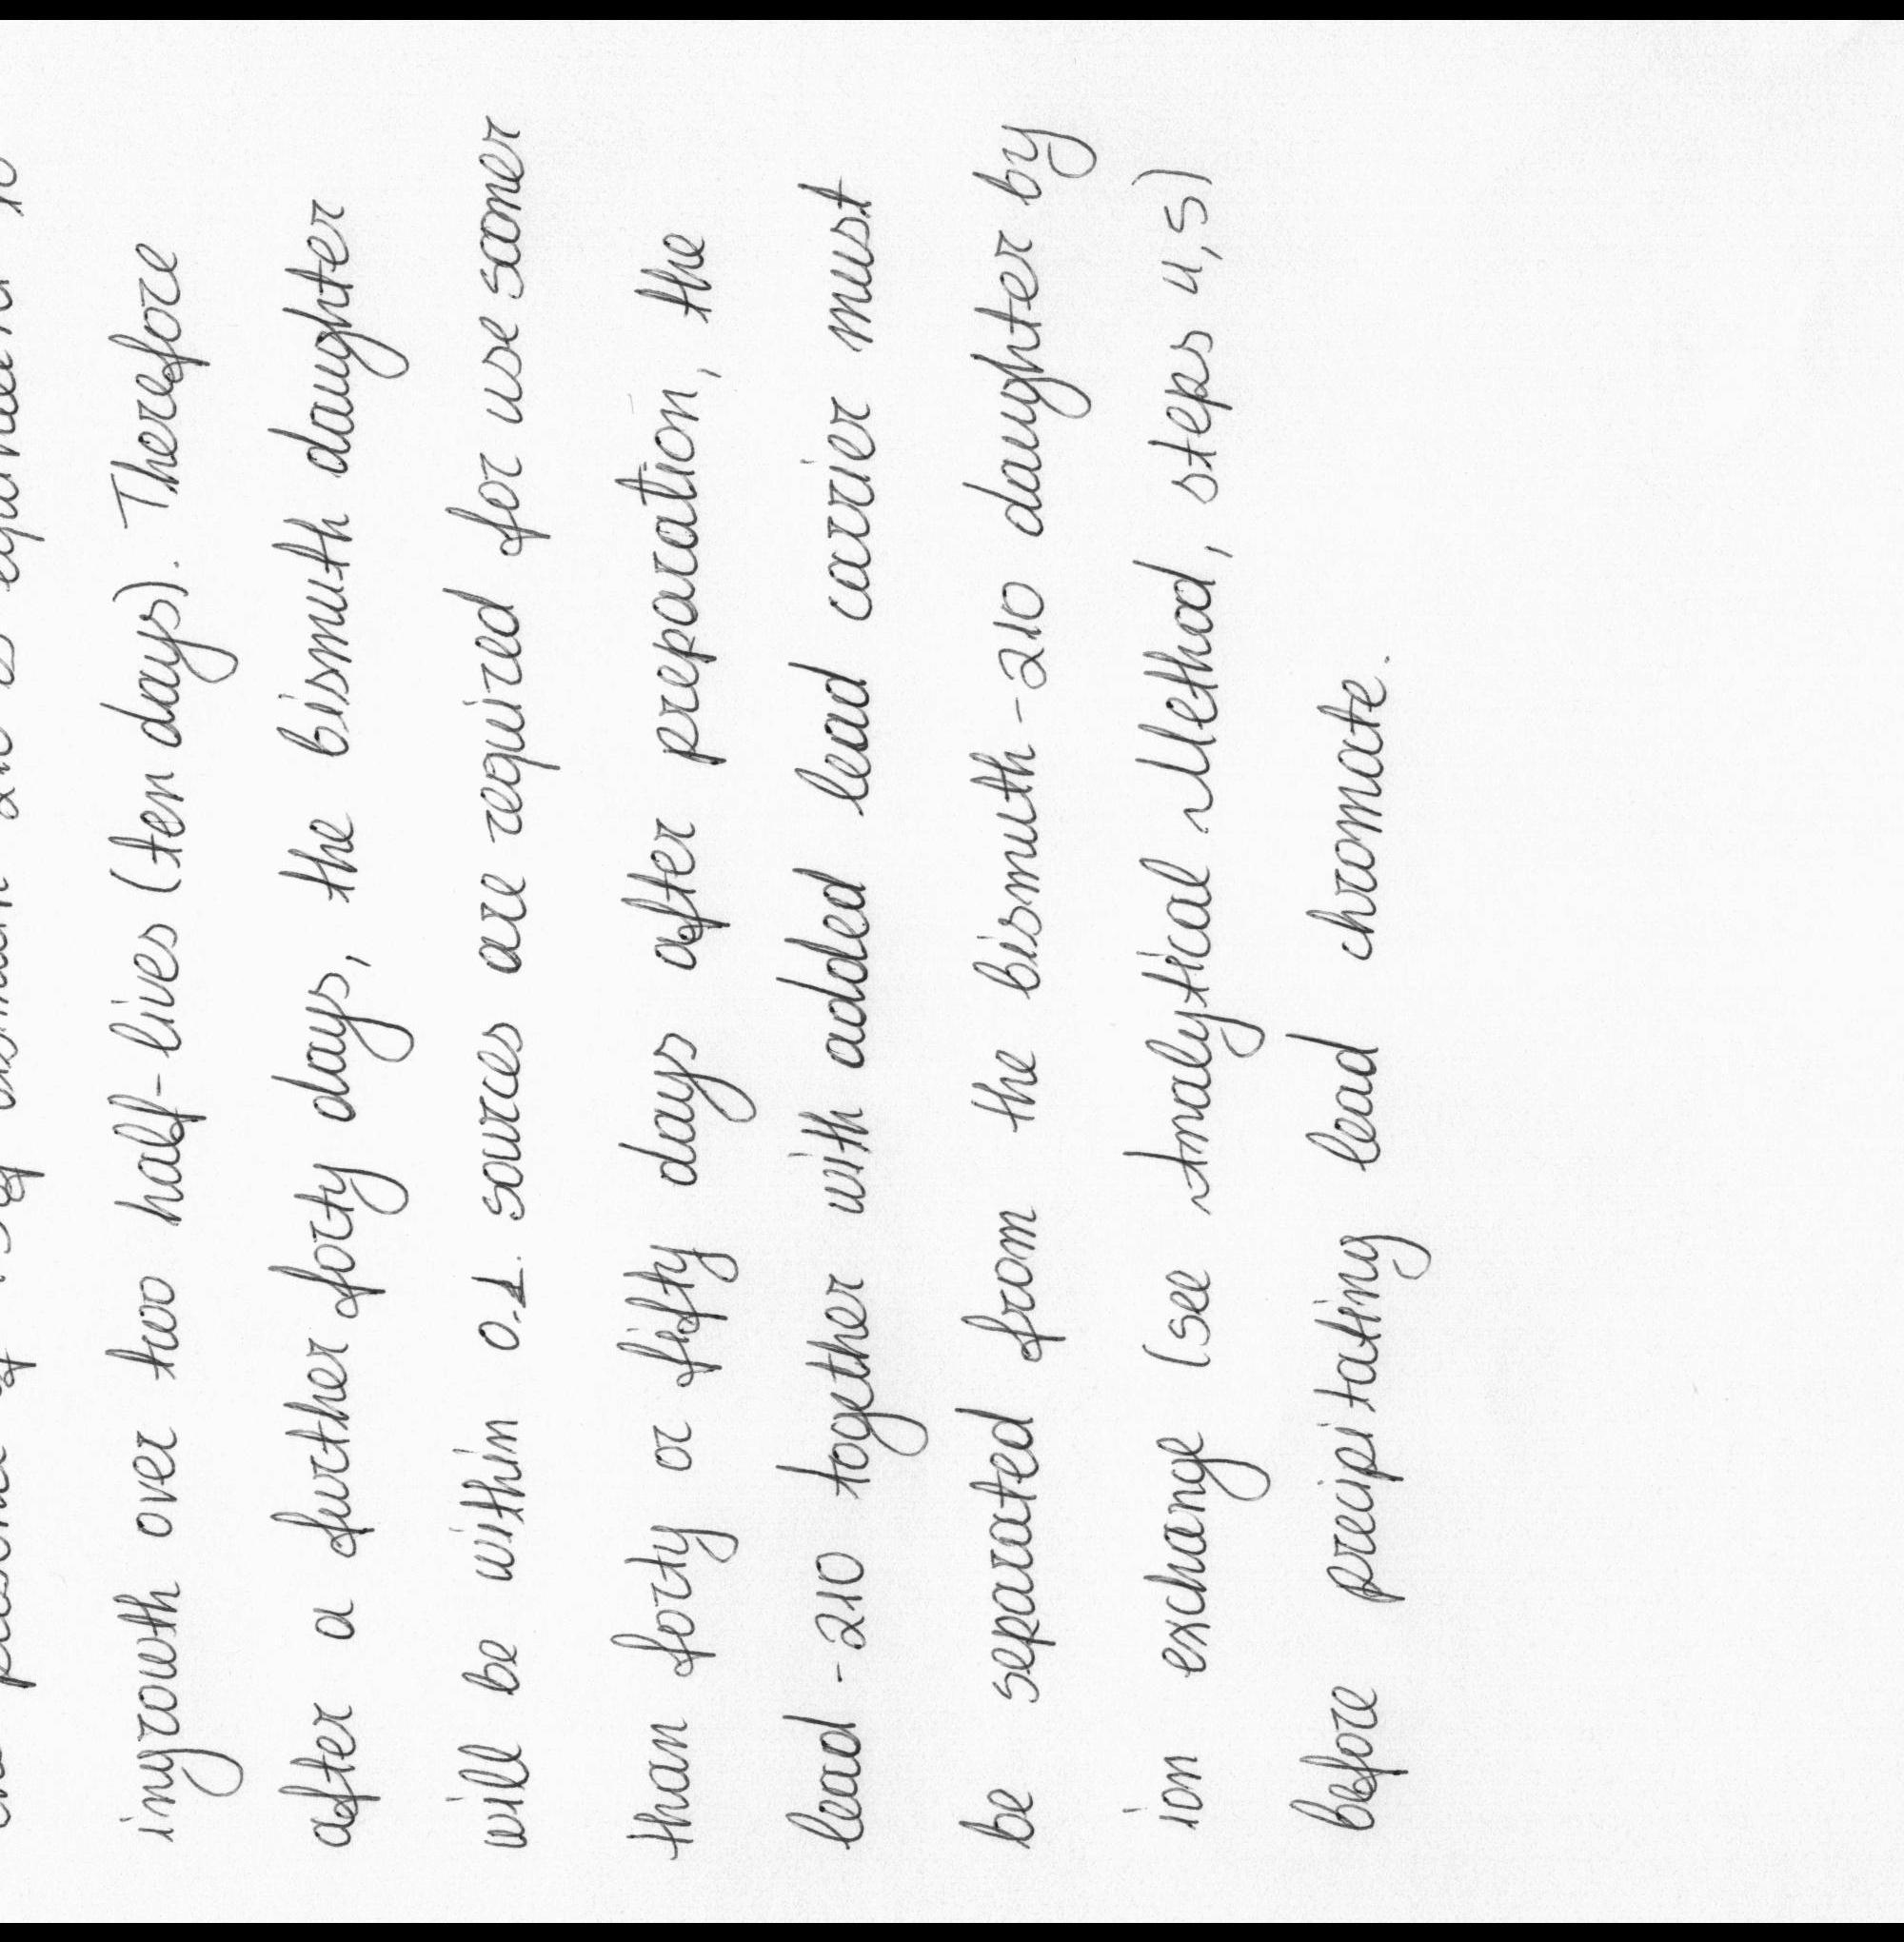 ingrowth over two half-lives (ten days). Therefore
after a further forty days, the bismuth daughter
will be within 0.1. sources are required for use sooner
than forty or fifty days after preparation, the
lead-210 together with added lead carrier must
be separated from the bismuth-210 daughter by
ion exchange (see Analytical Method, steps 4,5)
before precipitating lead chromate.